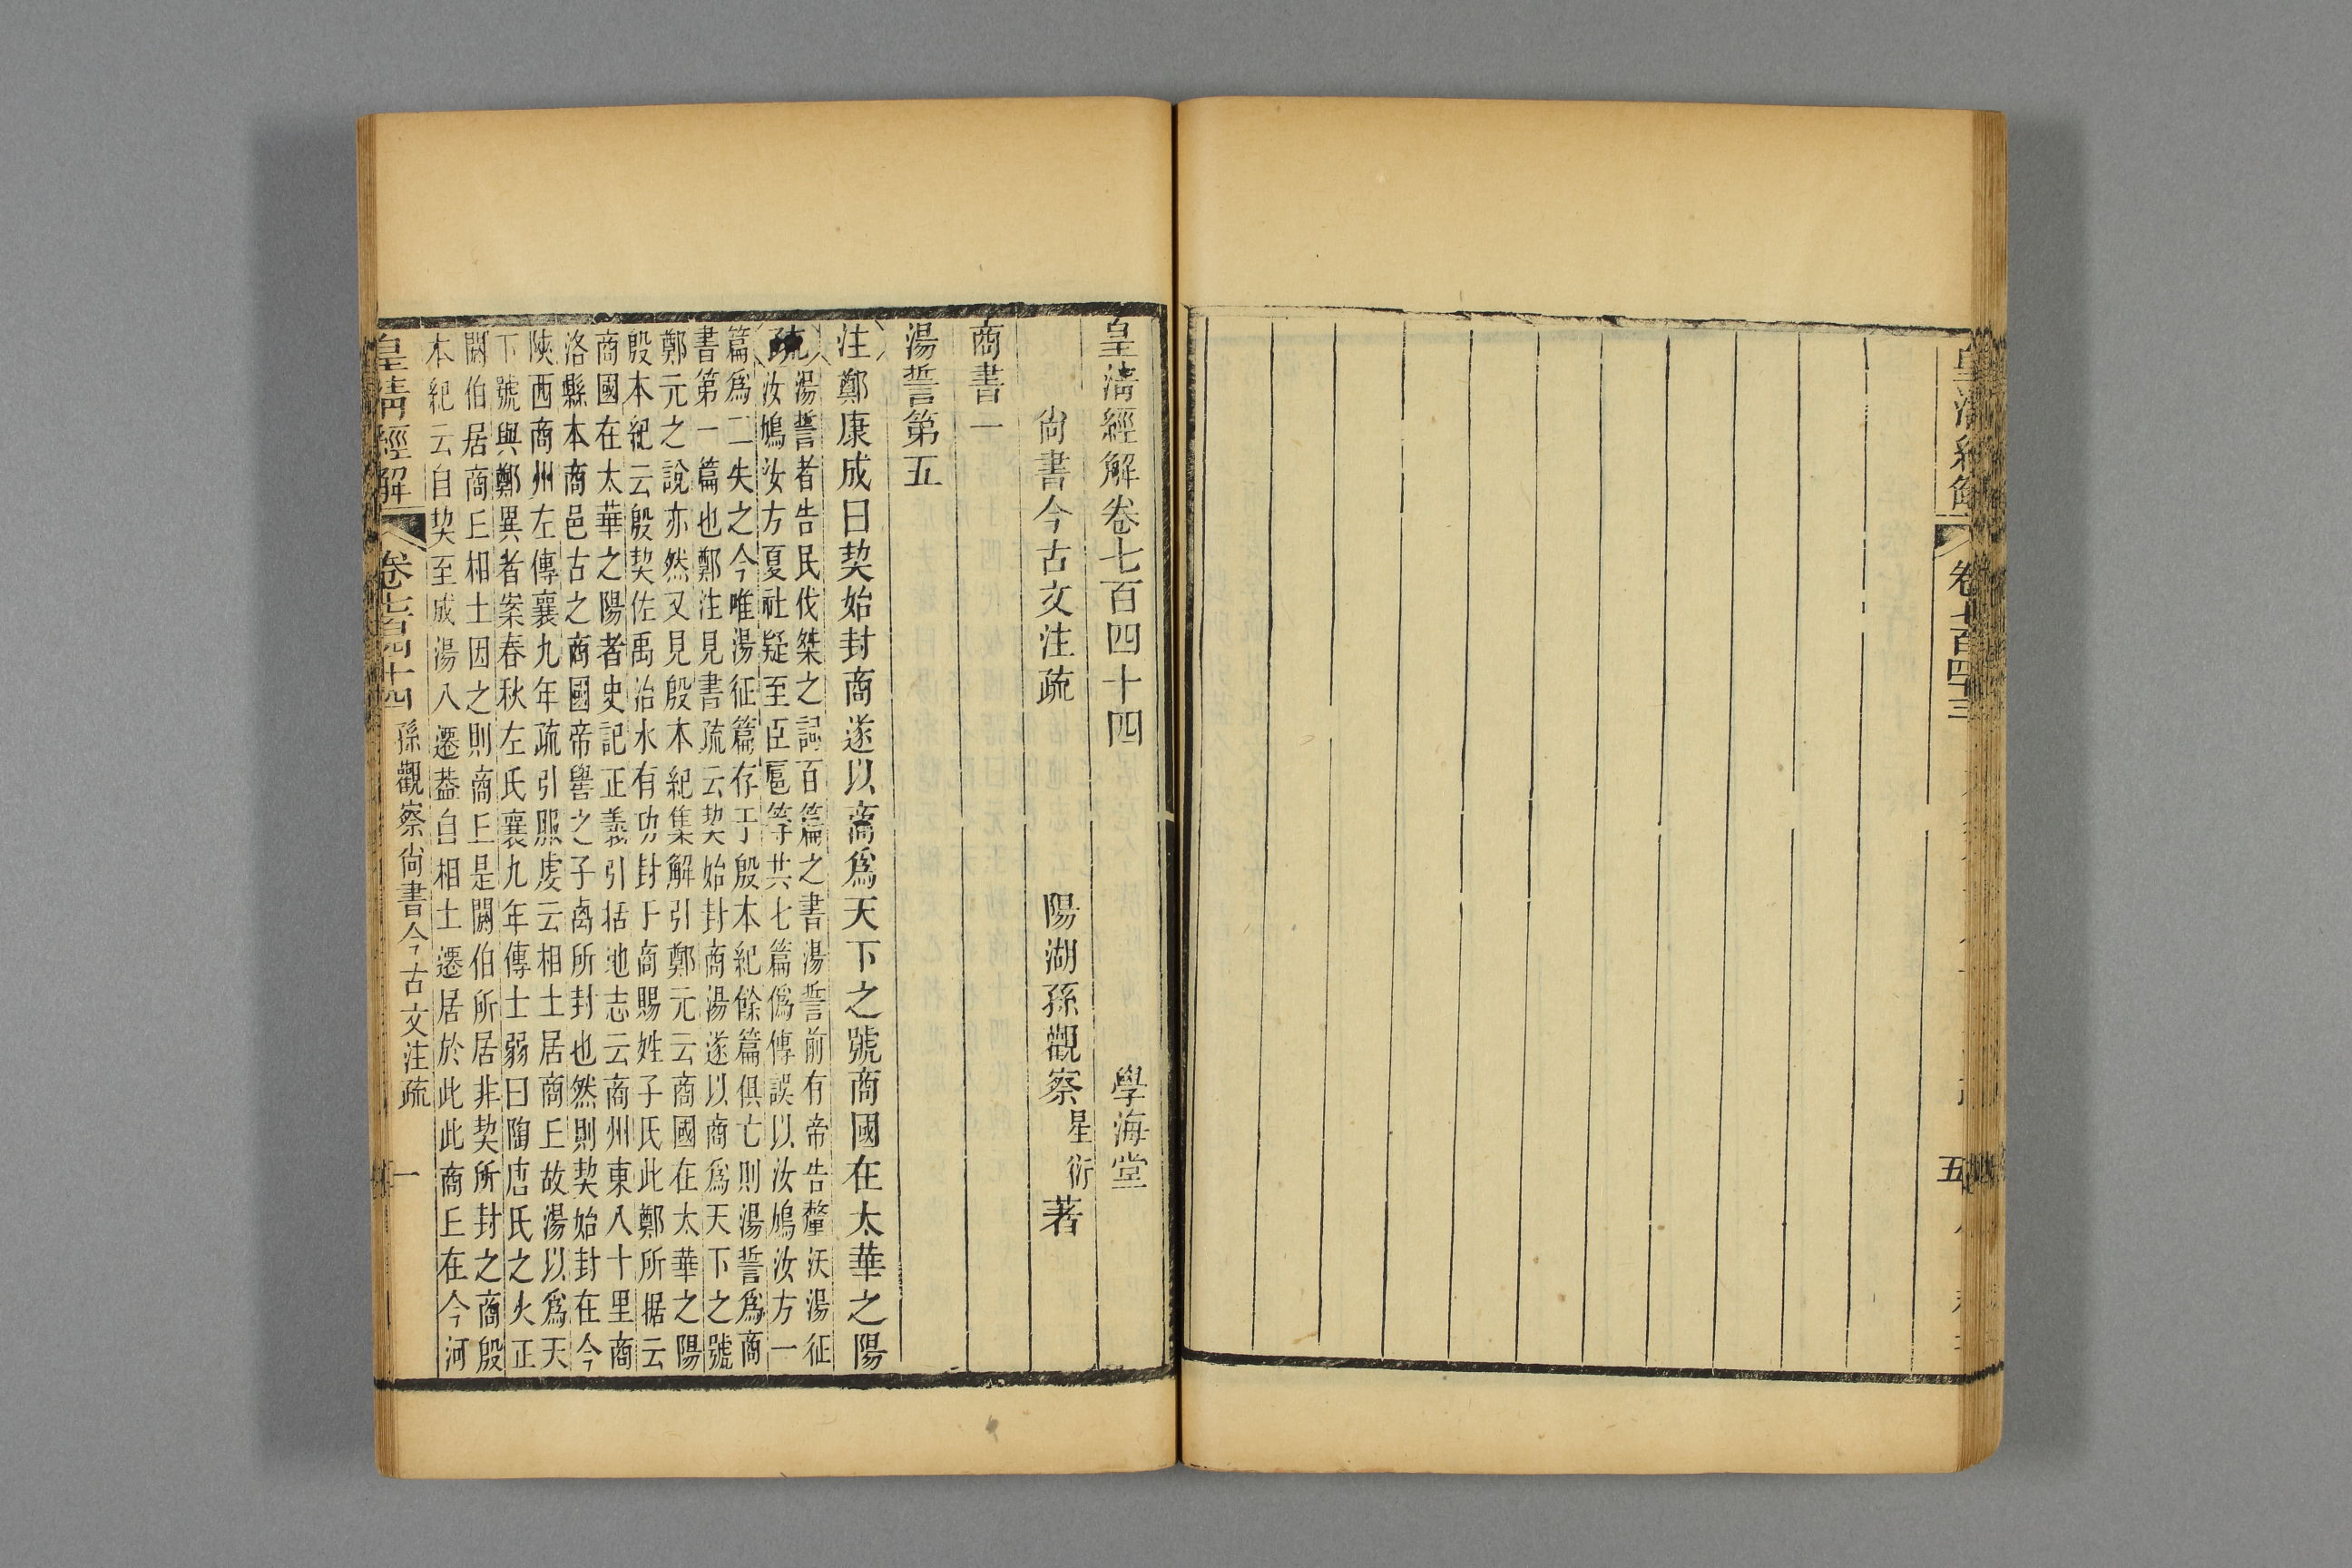 皇清經解
卷七百四十三
五
皇清經解卷七百四十四
學海堂
尚書今古文注疏
陽湖孫觀察星衍著
商書一
湯誓第五
注鄭康成曰契始封商遂以商爲天下之號商國在太華之陽
疏湯誓者告民伐桀之詞百篇之書湯誓前有帝告釐沃湯征
汝鳩汝方夏社疑至臣扈等共七篇僞傳誤以汝鳩汝方一
篇爲二失之今唯湯征篇存于殷本紀餘篇俱亡則湯誓爲商
書第一篇也鄭注見書疏云契始封商湯遂以商爲天下之號
鄭元之說亦然又見殷本紀集解引鄭元云商國在太華之陽
殷本紀云殷契佐禹治水有功封于商賜姓子氏此鄭所据云
商國在太華之陽者史記正義引括地志云商州東八十里商
洛縣本商邑古之商國帝嚳之子卨所封也然則契始封在今
陝西商州左傳襄九年疏引服虔云相土居商丘故湯以爲天
下號與鄭異者案春秋左氏襄九年傳士弱曰陶唐氏之火正
閼伯居商丘相土因之則商丘是閼伯所居非契所封之商殷
本紀云自契至成湯八遷葢自相土遷居於此此商丘在今河
皇清經解
卷七百四十四
孫觀察尚書今古文注疏
一